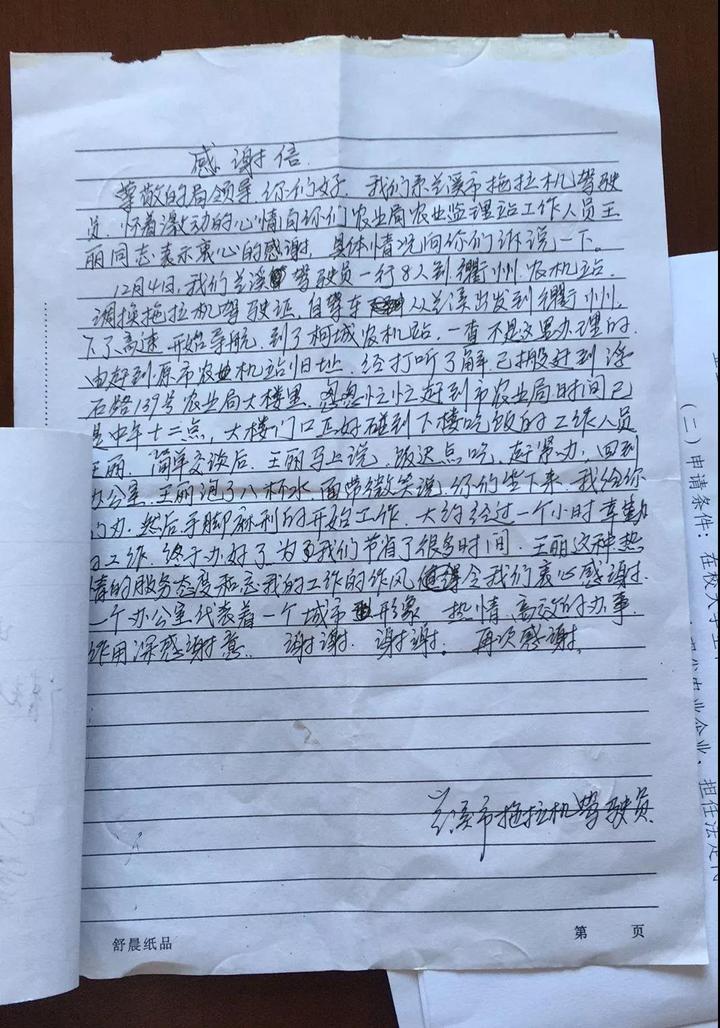 感谢信.
尊敬的局领导 你们好 我们系兰溪市拖拉机驾驶
员.怀着激动的心情向你们农业局农业监理站工作人员王
丽同志表示衷心的感谢,具体情况向你们诉说一下。
12月4日,我们兰溪 驾驶员一行8人到衢州.农机站.
调换拖拉机驾驶证,自驾车 从兰溪出发到衢州,
下了高速开始导航.到了柯城农机站,一查不是这里办理的.
由赶到原市农机站旧址,经打听了解已搬迁到
石路139号农业局大楼里.忽忽忙忙赶到市农业局时间已
是中午十二点,大楼门口正好碰到下楼吃饭的工作人员
王丽.简单交谈后.王丽马上说.饭迟点吃,赶紧办,回到
办公室.王丽泡了八杯水 面带微笑说,你们坐下来,我给你
们办.然后手脚麻利的开始工作.大约经过一个小时辛勤
的工作.终于办好了为我们节省了很多时间.王丽这种热
情的服务态度和忘我的工作的作风 令我们衷心感谢.
一个办公室代表着一个城市 形象 热情.高效的办事.
作用深感谢意. 谢谢. 谢谢. 再次感谢.
兰溪市拖拉机驾驶员
舒晨纸品
第 页
(二)申请条件:在校大学生
业企业,担任法定代